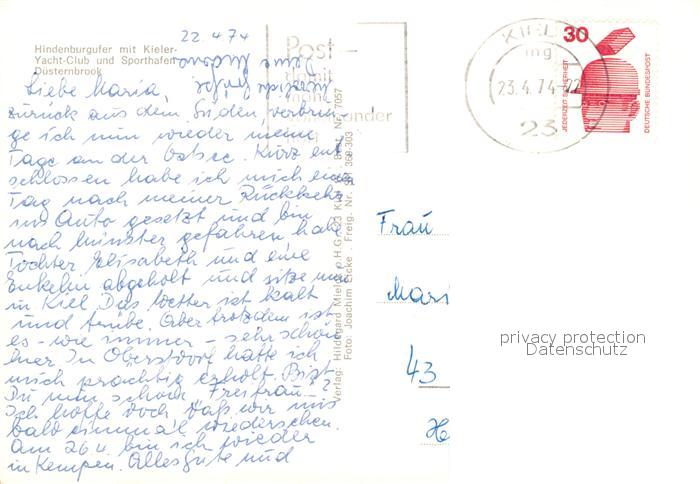 22 4 74
Hindenburgufer mit Kieler-
Yacht-Club und Sporthafen
Düsternbrook
Liebe Maria,
zurück aus dem Süden, verbrin-
ge ich nun wieder meine
Tage an der Ostsee. Kurz ent-
schlossen habe ich mich einen
Tag nach meiner Rückkehr
ins Auto gesetzt und bin
nach Münster gefahren hab
Tochter Elisabeth und eine
Enkelin abgeholt und sitze nun
in Kiel Das Wetter ist kalt
und trübe. Aber trotzdem ist
es - wie immer - sehr schön
hier In Oberstdorf hatte ich
mich prächtig erholt. Bist
Du nun schon "Freifrau"?
Ich hoffe doch daß wir uns
bald einmal wiedersehen.
Am 26 4. bin ich wieder
in Kempen. Alles Gute und
Verlag: Hildegard Mielke
Foto: Joachim Eicke . Freig. Nr. SH 368-303
Post-
damit
man
KIEL
mg
23.4.74-22
23
30
JEDERZEIT SICHERHEIT
DEUTSCHE BUNDESPOST
Frau
Mari
43
privacy protection
Datenschutz